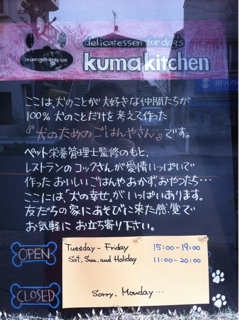 delicatessen for dogs
kuma kitchen
ここは、犬のことが大好きな仲間たちが
100% 犬のことだけを考えて作った
『犬のためのごはんやさん』です。
ペット栄養管理士監修のもと、
レストランのコックさんが愛情いっぱいで
作ったおいしいごはんやおかず、おやつたち…
ここには、「犬の幸せ」がいっぱいあります。
友だちの家にあそびに来た感覚で
お気軽にお立ち寄り下さい。
OPEN
Tuesday - Friday 15:00-19:00
Sat, Sun, and Holiday 11:00-20:00
CLOSED
Sorry, Monday…